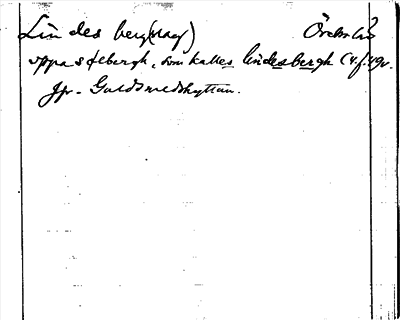 Lindesberg (stad) Örebro län
uppa s ølbergh, som kalles lindesbergh (4.f.49v.
Jfr. Guldsmedshyttan.